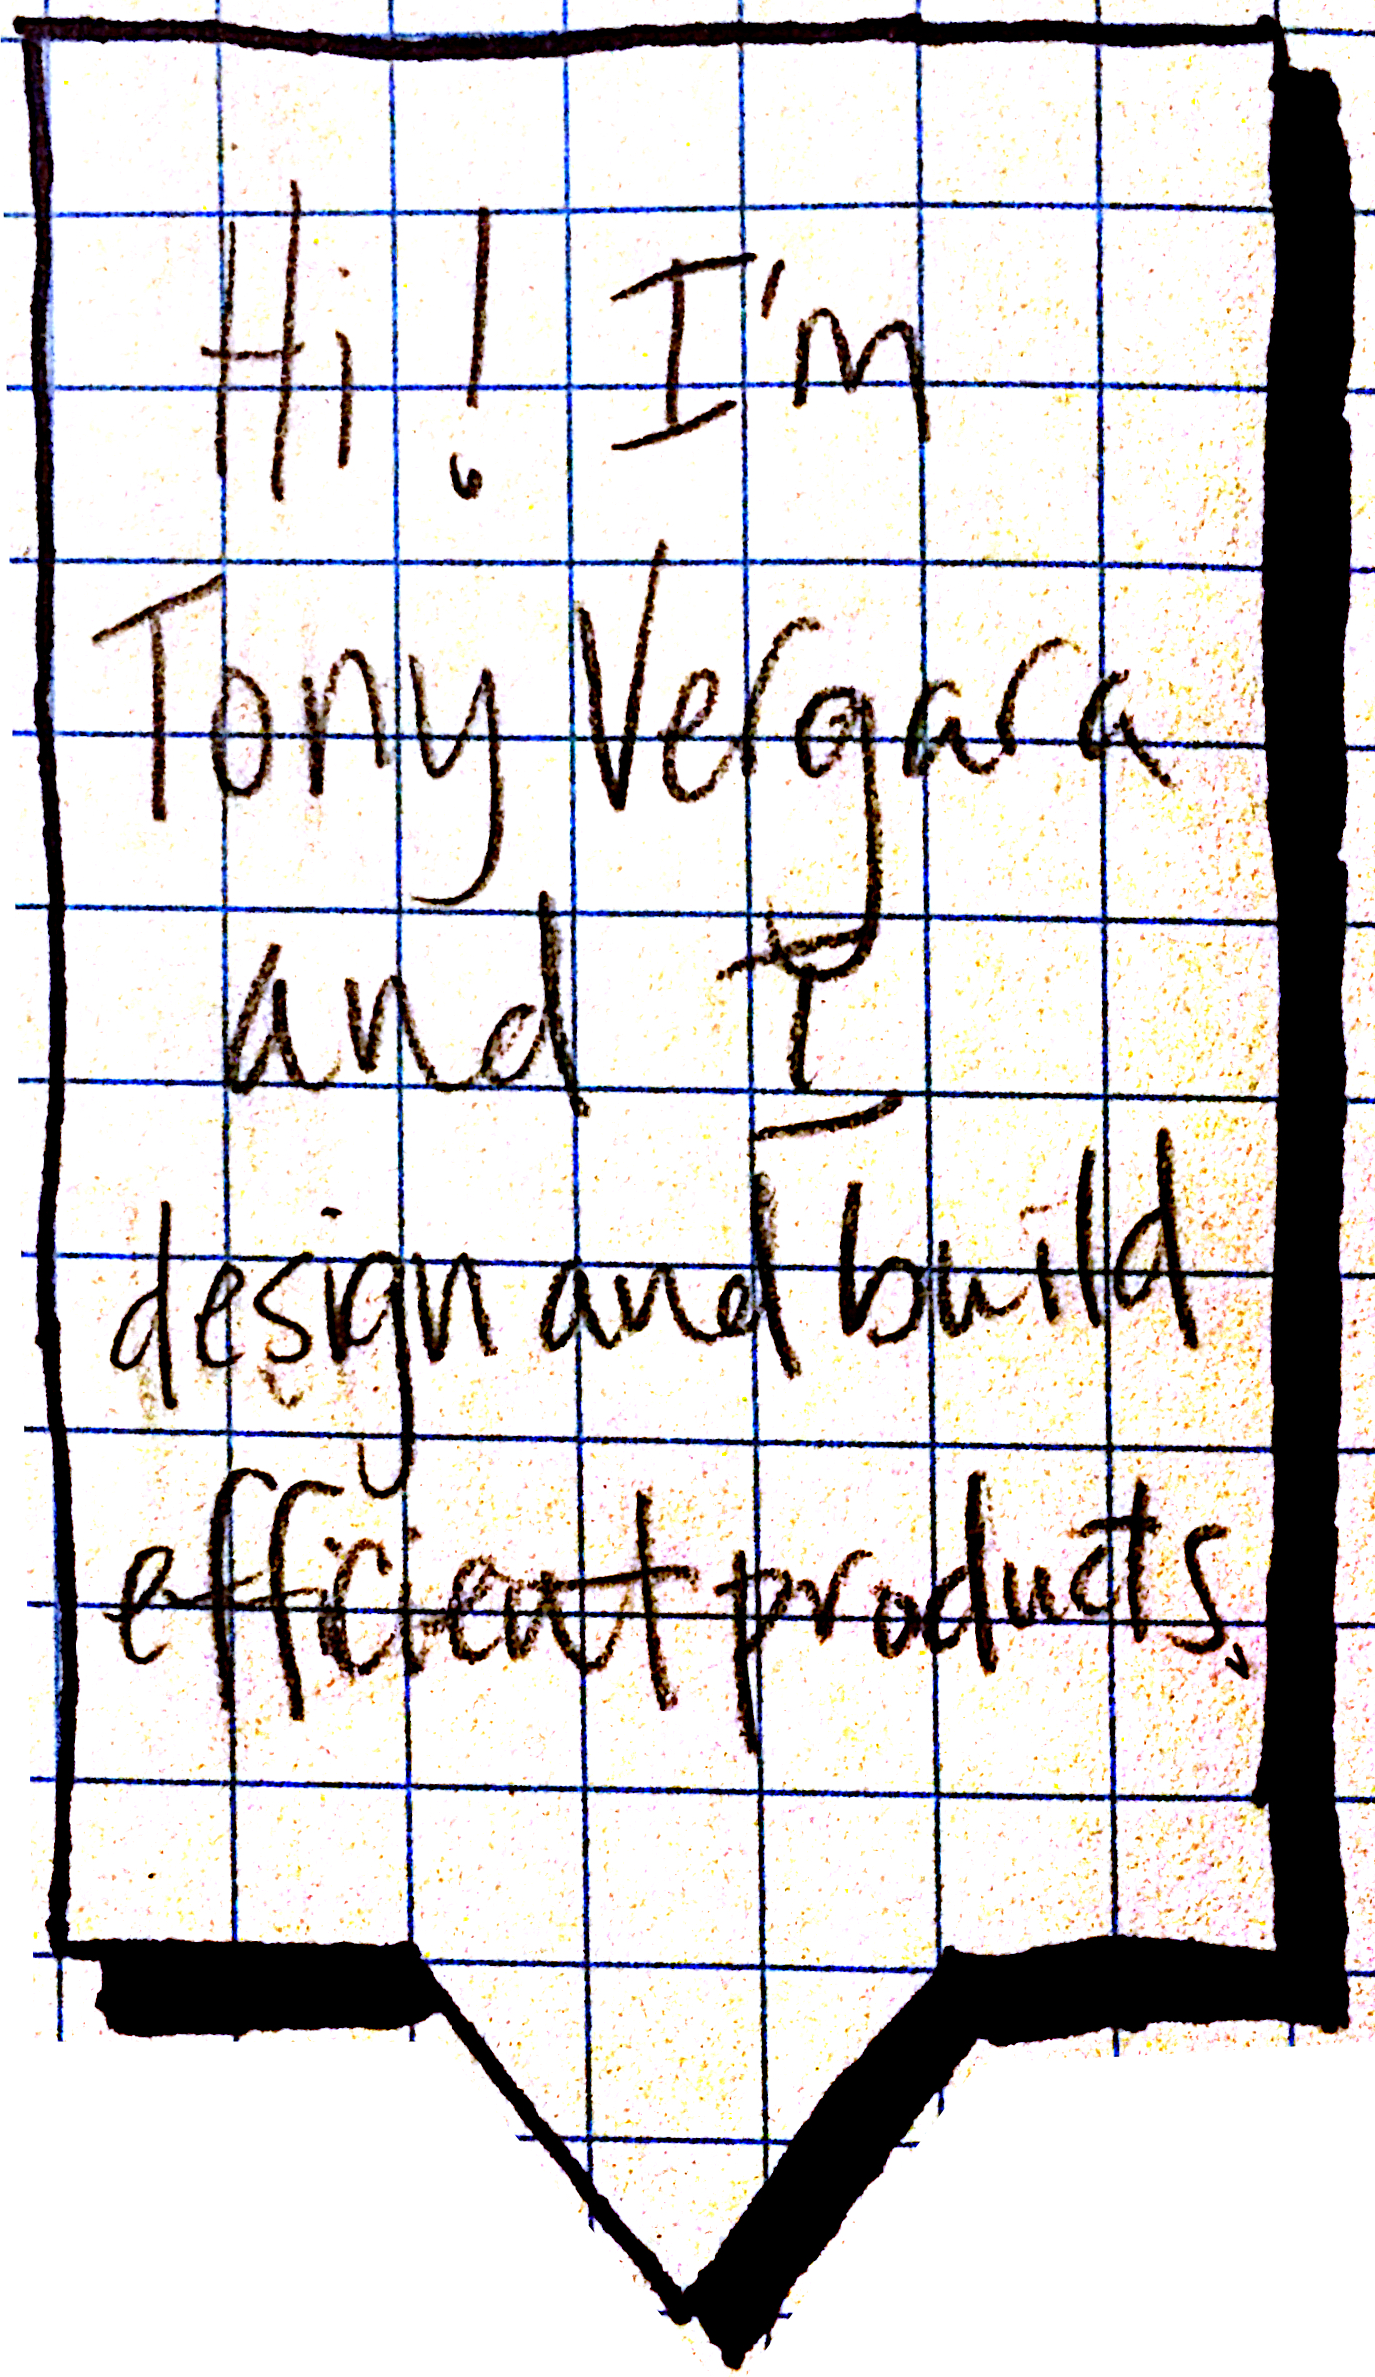 Hi! I'm
Tony Vergara
and I
design and build
efficient products.